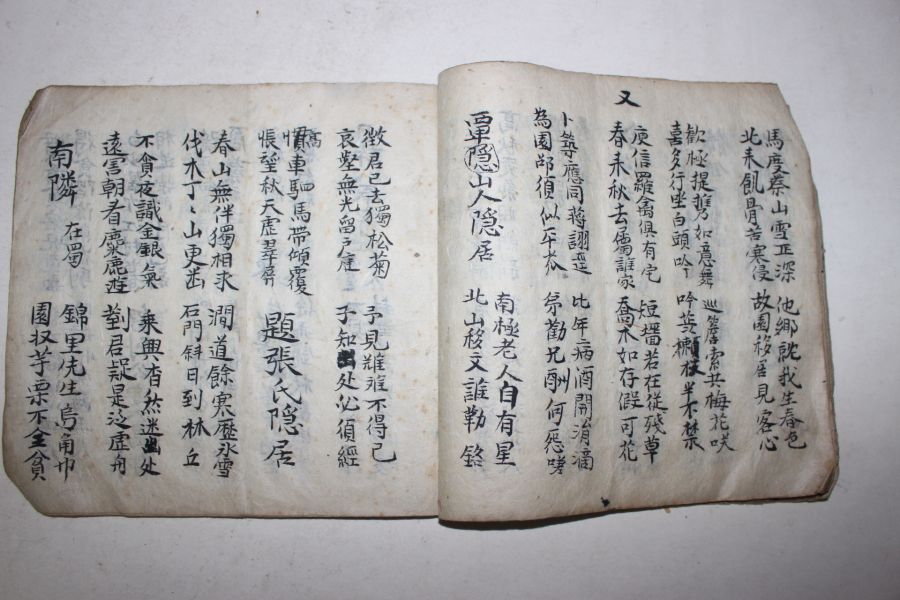 馬度秦山雪正深
北来飢骨苦寒侵
他鄉就我生春色
故園移居見客心
歡極提携如意舞
喜多行坐白頭吟
巡簷索共梅花咲
吟蘂嬾枝半不禁
又
庾信羅禽俱有宅
春来秋去屬誰家
短墻若在從殘草
喬木如存假可花
卜築應同蔣詡逕
為園邵須似平瓜
比年病酒開涓滴
弟勸兄酬何怨嗟
覃隐山人隐居
南極老人自有星
北山移文誰勒銘
徵君已去獨松菊
哀壑無光留戶庭
予見難離不得已
子知出处必須經
高車駟馬帶傾覆
悵望秋天虛翠屏
題張氏隐居
春山無伴獨相求
伐木丁丶山更幽
澗道餘寒歷氷雪
石門斜日到林丘
不貪夜識金銀氣
遠害朝看麋鹿遊
乗興杳然迷出处
對君疑是泛虛舟
南隣 在蜀
錦里先生烏角巾
園收芋栗不全貧